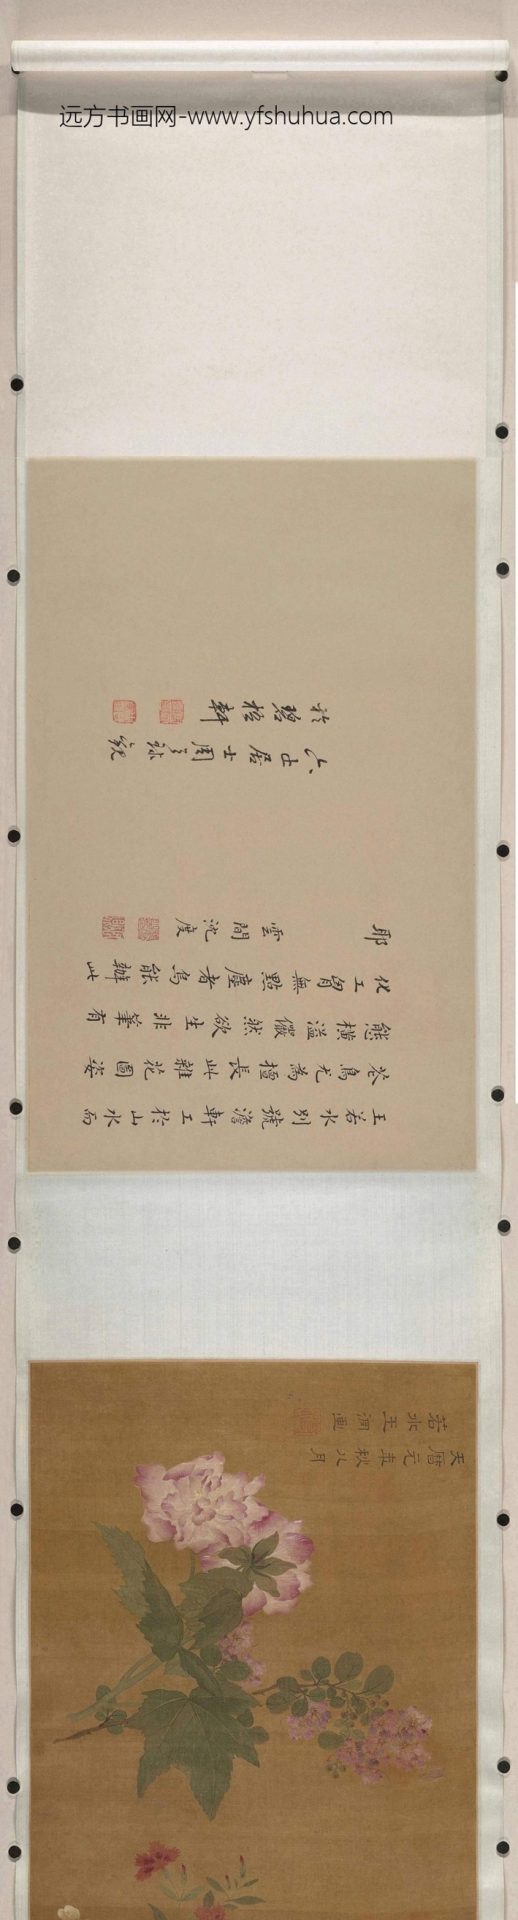 远方书画网-www.yfshuhua.com
天曆元年秋八月
若水王淵画
王若水別號澹軒工於山水而
花鳥尤為擅長此雜花圖姿
態橫溢儼然欲生非筆有
化工胸無點塵者烏能辦此
耶 雲間沈度
居士周之球觀
於碧梧軒